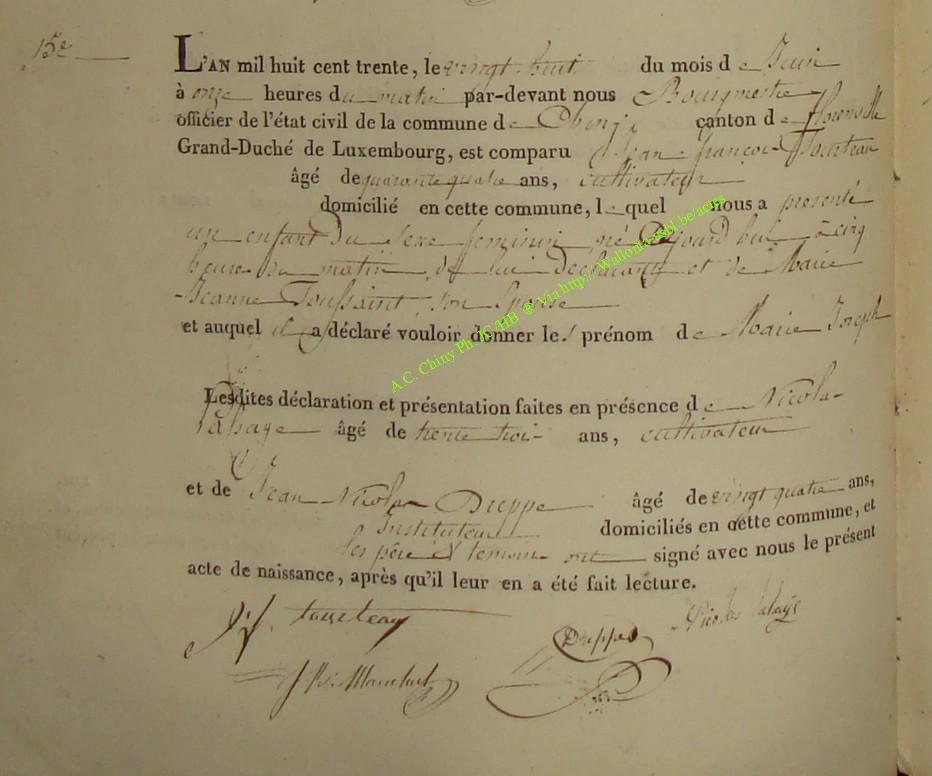 15e
L'AN mil huit cent trente, le vingt huit du mois de Juin
à onze heures du matin par-devant nous Bourgmestre
officier de l'état civil de la commune de Chiny canton de florenville
Grand-Duché de Luxembourg, est comparu Jean françois Tourteau
âgé de quarante quatre ans, cultivateur
domicilié en cette commune, lequel nous a presenté
un enfant du sexe feminin né aujourd hui à cinq
heures du matin, de lui declarant et de Marie
Jeanne Toussaint son Epouse
et auquel il a déclaré vouloir donner les prénom de Marie Joseph
Lesdites déclaration et présentation faites en présence de Nicolas
âgé de trente trois ans, cultivateur
et de Jean Nicolas Dieppe âgé de vingt quatre ans,
Instituteur domiciliés en cette commune, et
les père & temoins ont signé avec nous le présent
acte de naissance, après qu'il leur en a été fait lecture.
J f tourteau
Dieppe
Nicolas
A.C. Chiny Ph JC/HB @ Via http://Wallonia-asbl.be/actes